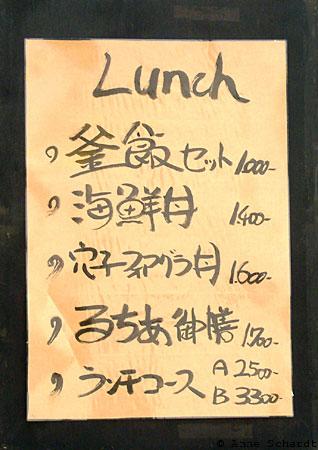 Lunch
釜飯セット 1.000-
海鮮丼 1.400-
穴子フォアグラ丼 1.600-
るちあ御膳 1.700-
ランチコース A 2500-
B 3300-
© Anne Schardt